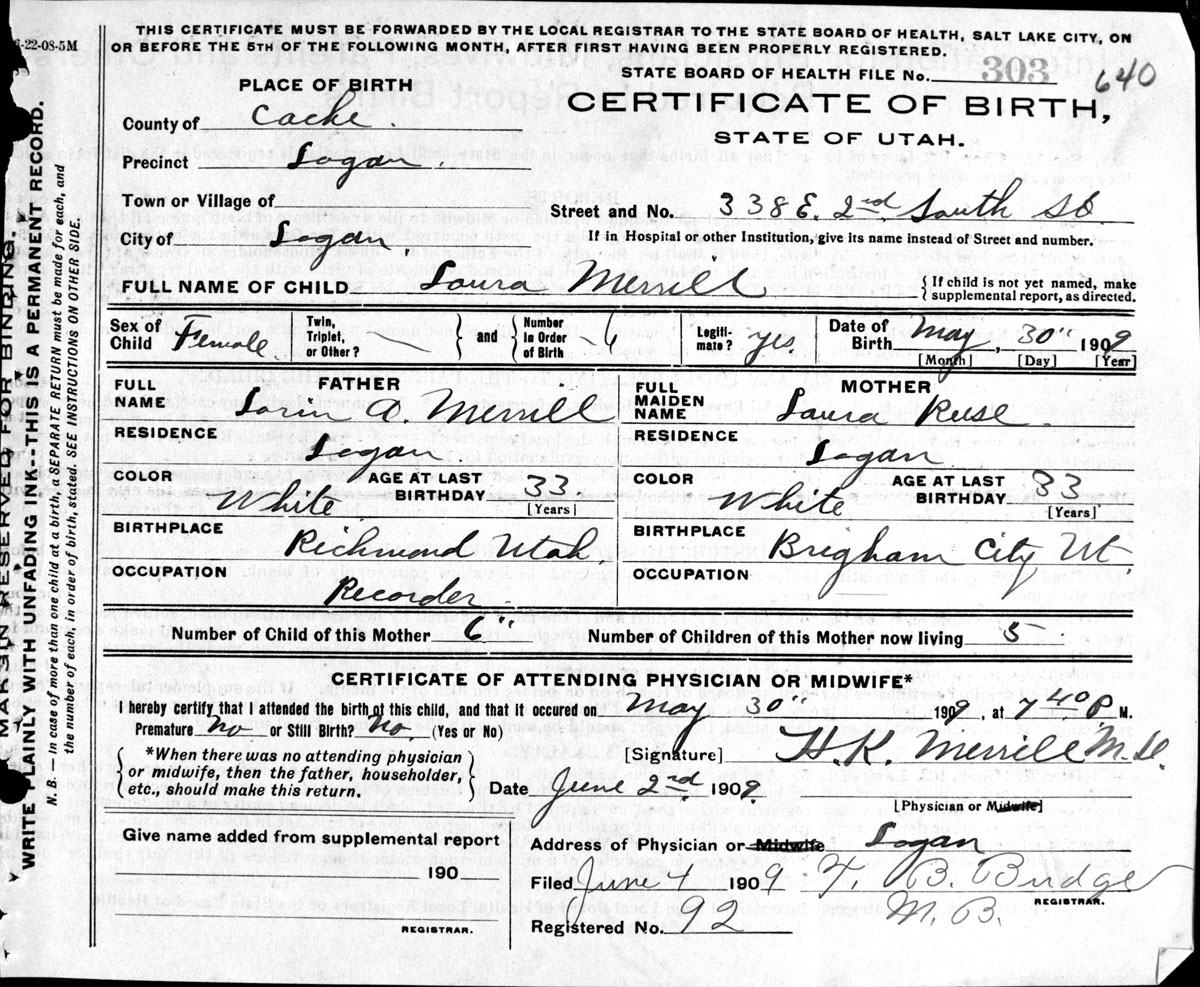 6-22-08-5M
THIS CERTIFICATE MUST BE FORWARDED BY THE LOCAL REGISTRAR TO THE STATE BOARD OF HEALTH, SALT LAKE CITY, ON
OR BEFORE THE 5TH OF THE FOLLOWING MONTH, AFTER FIRST HAVING BEEN PROPERLY REGISTERED.
STATE BOARD OF HEALTH FILE No. 303 640
PLACE OF BIRTH
CERTIFICATE OF BIRTH,
STATE OF UTAH.
County of Cache.
Precinct Logan.
Town or Village of
Street and No. 338 E. 2nd South St
City of Logan
If in Hospital or other Institution, give its name instead of Street and number.
FULL NAME OF CHILD Laura Merrill
{ If child is not yet named, make
supplemental report, as directed.
Sex of Child Female
Twin, Triplet, or Other? } and { Number In Order of Birth
Legiti-mate? yes.
Date of Birth May, 30" 1909
[Month] [Day] [Year]
FATHER
FULL NAME Lorin A Merrill
RESIDENCE Logan
COLOR White
AGE AT LAST BIRTHDAY 33
[Years]
BIRTHPLACE Richmond Utah
OCCUPATION Recorder.
MOTHER
FULL MAIDEN NAME Laura Reese
RESIDENCE Logan
COLOR White
AGE AT LAST BIRTHDAY 33
[Years]
BIRTHPLACE Brigham City Ut
OCCUPATION
Number of Child of this Mother 6" Number of Children of this Mother now living 5
CERTIFICATE OF ATTENDING PHYSICIAN OR MIDWIFE*
I hereby certify that I attended the birth of this child, and that it occured on May 30" 1909, at 7 40 P. M.
Premature No or Still Birth? No. (Yes or No)
{ *When there was no attending physician
or midwife, then the father, householder,
etc., should make this return. }
[Signature] H.K. Merrill M.D.
Date June 2nd 1909.
[Physician or Midwife]
Give name added from supplemental report
190
REGISTRAR.
Address of Physician or Midwife Logan
Filed June 4 1909 T. B. Budge
M. B.
REGISTRAR.
Registered No. 92
MARGIN RESERVED FOR BINDING.
WRITE PLAINLY WITH UNFADING INK--THIS IS A PERMANENT RECORD.
N. B. — in case of more than one child at a birth, a SEPARATE RETURN must be made for each, and
the number of each, in order of birth, stated. SEE INSTRUCTIONS ON OTHER SIDE.